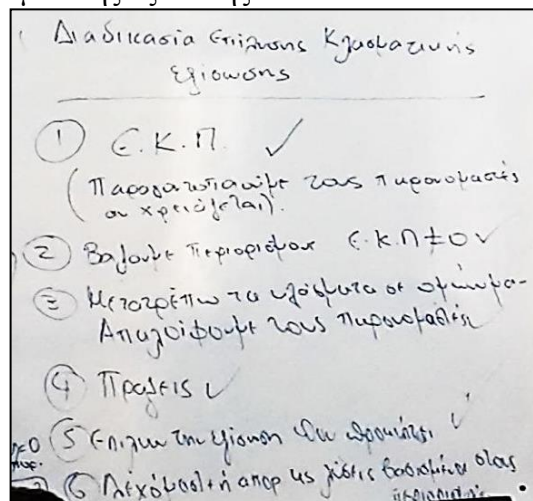 Διαδικασία Επίλυσης Κλασματικής
Εξίσωσης
① Ε.Κ.Π. ✓
(Παραγοντοποιούμε τους παρονομαστές
αν χρειάζεται).
② Βάζουμε περιορισμούς Ε.Κ.Π ≠ 0 ✓
③ Μετατρέπω τα κλάσματα σε ομώνυμα-
Απαλοίφουμε τους παρονομαστές
④ Πράξεις ✓
⑤ Επιλύω την εξίσωση που προκύπτει ✓
⑥ Δεχόμαστε ή απορ τις λύσεις βασισμένοι στους
περιορισμούς